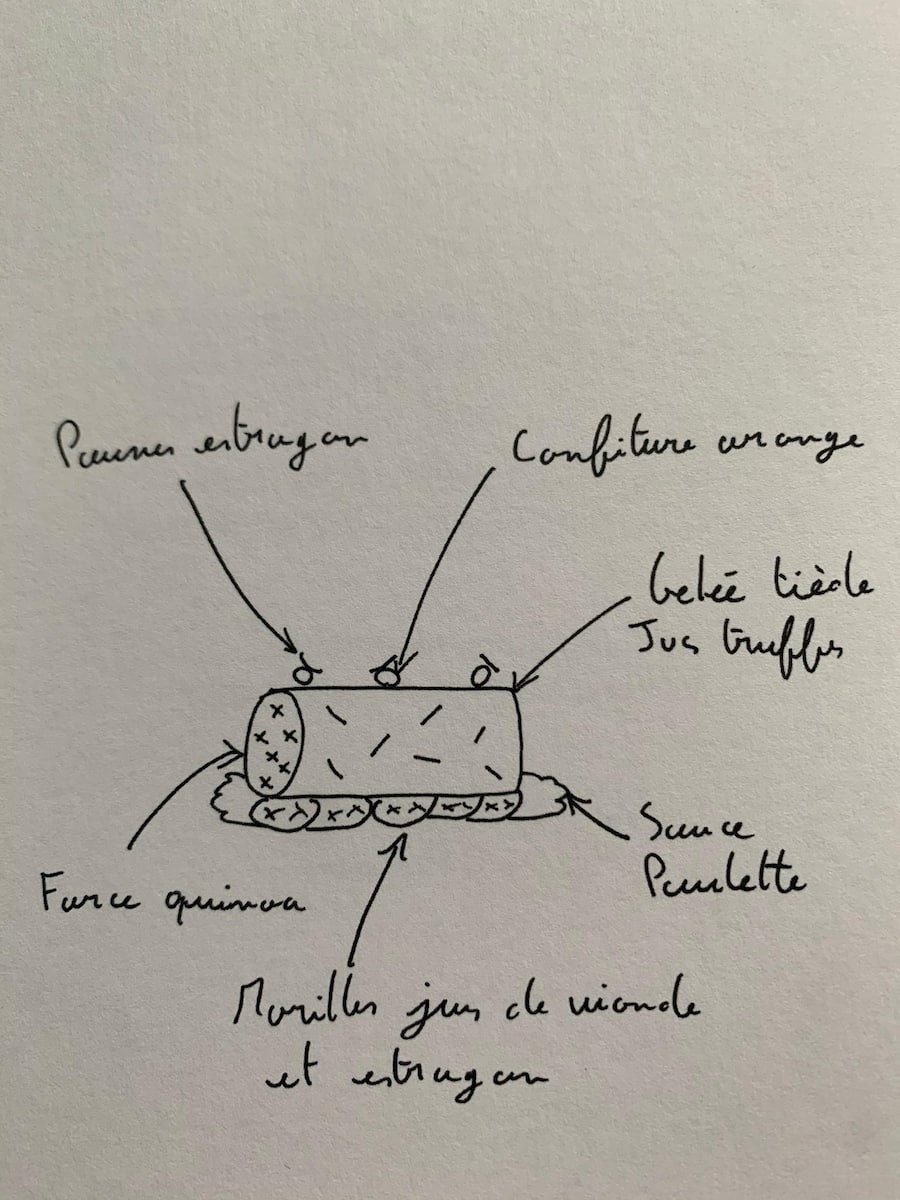 Pousses estragon
Confiture orange
Gelée tiède
Jus truffes
Sauce
Poulette
Farce quinoa
Morilles jus de viande
et estragon